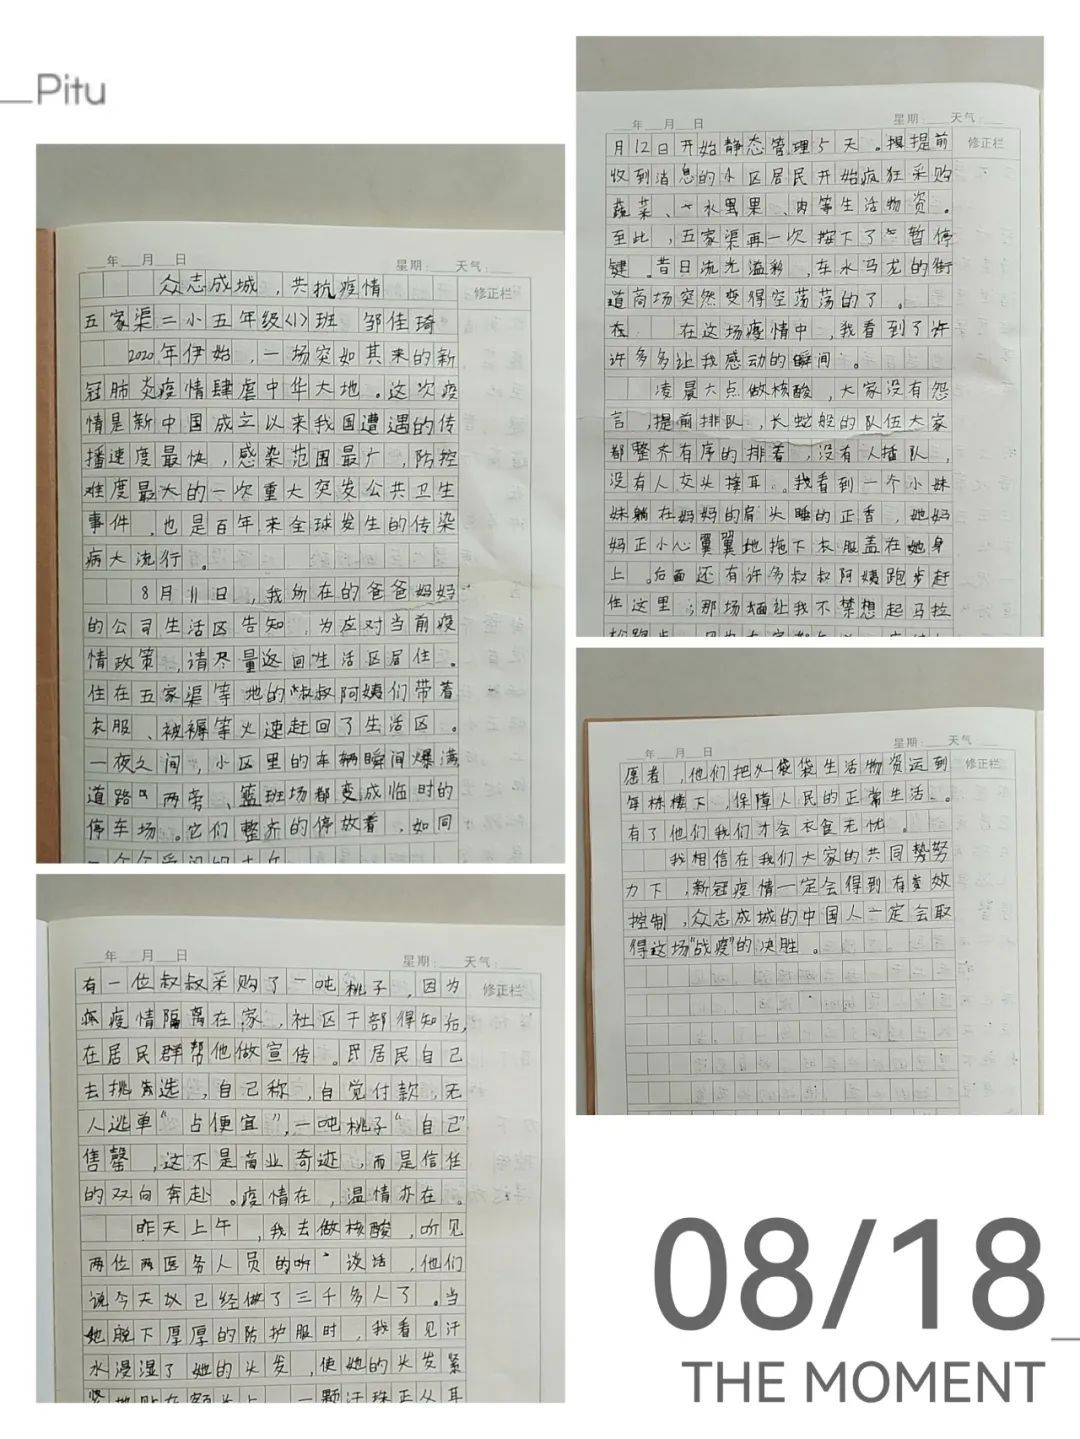 Pitu
年 月 日 星期: 天气:
修正栏
众志成城，共抗疫情
五家渠二小五年级〈1〉班 邹佳琦
2020年伊始，一场突如其来的新
冠肺炎疫情肆虐中华大地。这次疫
情是新中国成立以来我国遭遇的传
播速度最快，感染范围最广，防控
难度最大的一次重大突发公共卫生
事件，也是百年来全球发生的传染
病大流行。
8月11日，我所在的爸爸妈妈
的公司生活区告知，为应对当前疫
情政策，请尽量返回生活区居住。
住在五家渠等地的叔叔阿姨们带着
衣服、被褥等火速赶回了生活区。
一夜之间，小区里的车辆瞬间爆满
道路两旁、篮班场都变成临时的
停车场。它们整齐的停放着，如同
年 月 日 星期: 天气:
修正栏
月12日开始静态管理5天。提前
收到消息的小区居民开始疯狂采购
蔬菜、水果、肉等生活物资。
至此，五家渠再一次按下了暂停
键。昔日流光溢彩，车水马龙的街
道商场突然变得空荡荡的了。
在 在这场疫情中，我看到了许
许多多让我感动的瞬间。
凌晨六点做核酸，大家没有怨
言，提前排队，长蛇般的队伍大家
都整齐有序的排着，没有人插队，
没有人交头接耳。我看到一个小妹
妹躺在妈妈的肩头睡的正香，她妈
妈正小心翼翼地拖下衣服盖在她身
上。后面还有许多叔叔阿姨跑步赶
往这里，那场面让我不禁想起马拉
年 月 日 星期: 天气:
修正栏
有一位叔叔采购了一吨桃子，因为
疫情隔离在家，社区干部得知后，
在居民群帮他做宣传。居民自己
去挑选，自己称，自觉付款，无
人逃单“占便宜”，一吨桃子“自己”
售罄，这不是商业奇迹，而是信任
的双向奔赴。疫情在，温情亦在。
昨天上午，我去做核酸，听见
两位医务人员的谈话，他们
说今天以已经做了三千多人了。当
她脱下厚厚的防护服时，我看见汗
水浸湿了她的头发，使她的头发紧
紧地贴在额头上，一颗汗珠正从耳
年 月 日 星期: 天气:
修正栏
愿者，他们把一袋袋生活物资运到
每栋楼下，保障人民的正常生活。
有了他们我们才会衣食无忧。
我相信在我们大家的共同努
力下，新冠疫情一定会得到有效
控制，众志成城的中国人一定会取
得这场“战疫”的决胜。
08/18
THE MOMENT